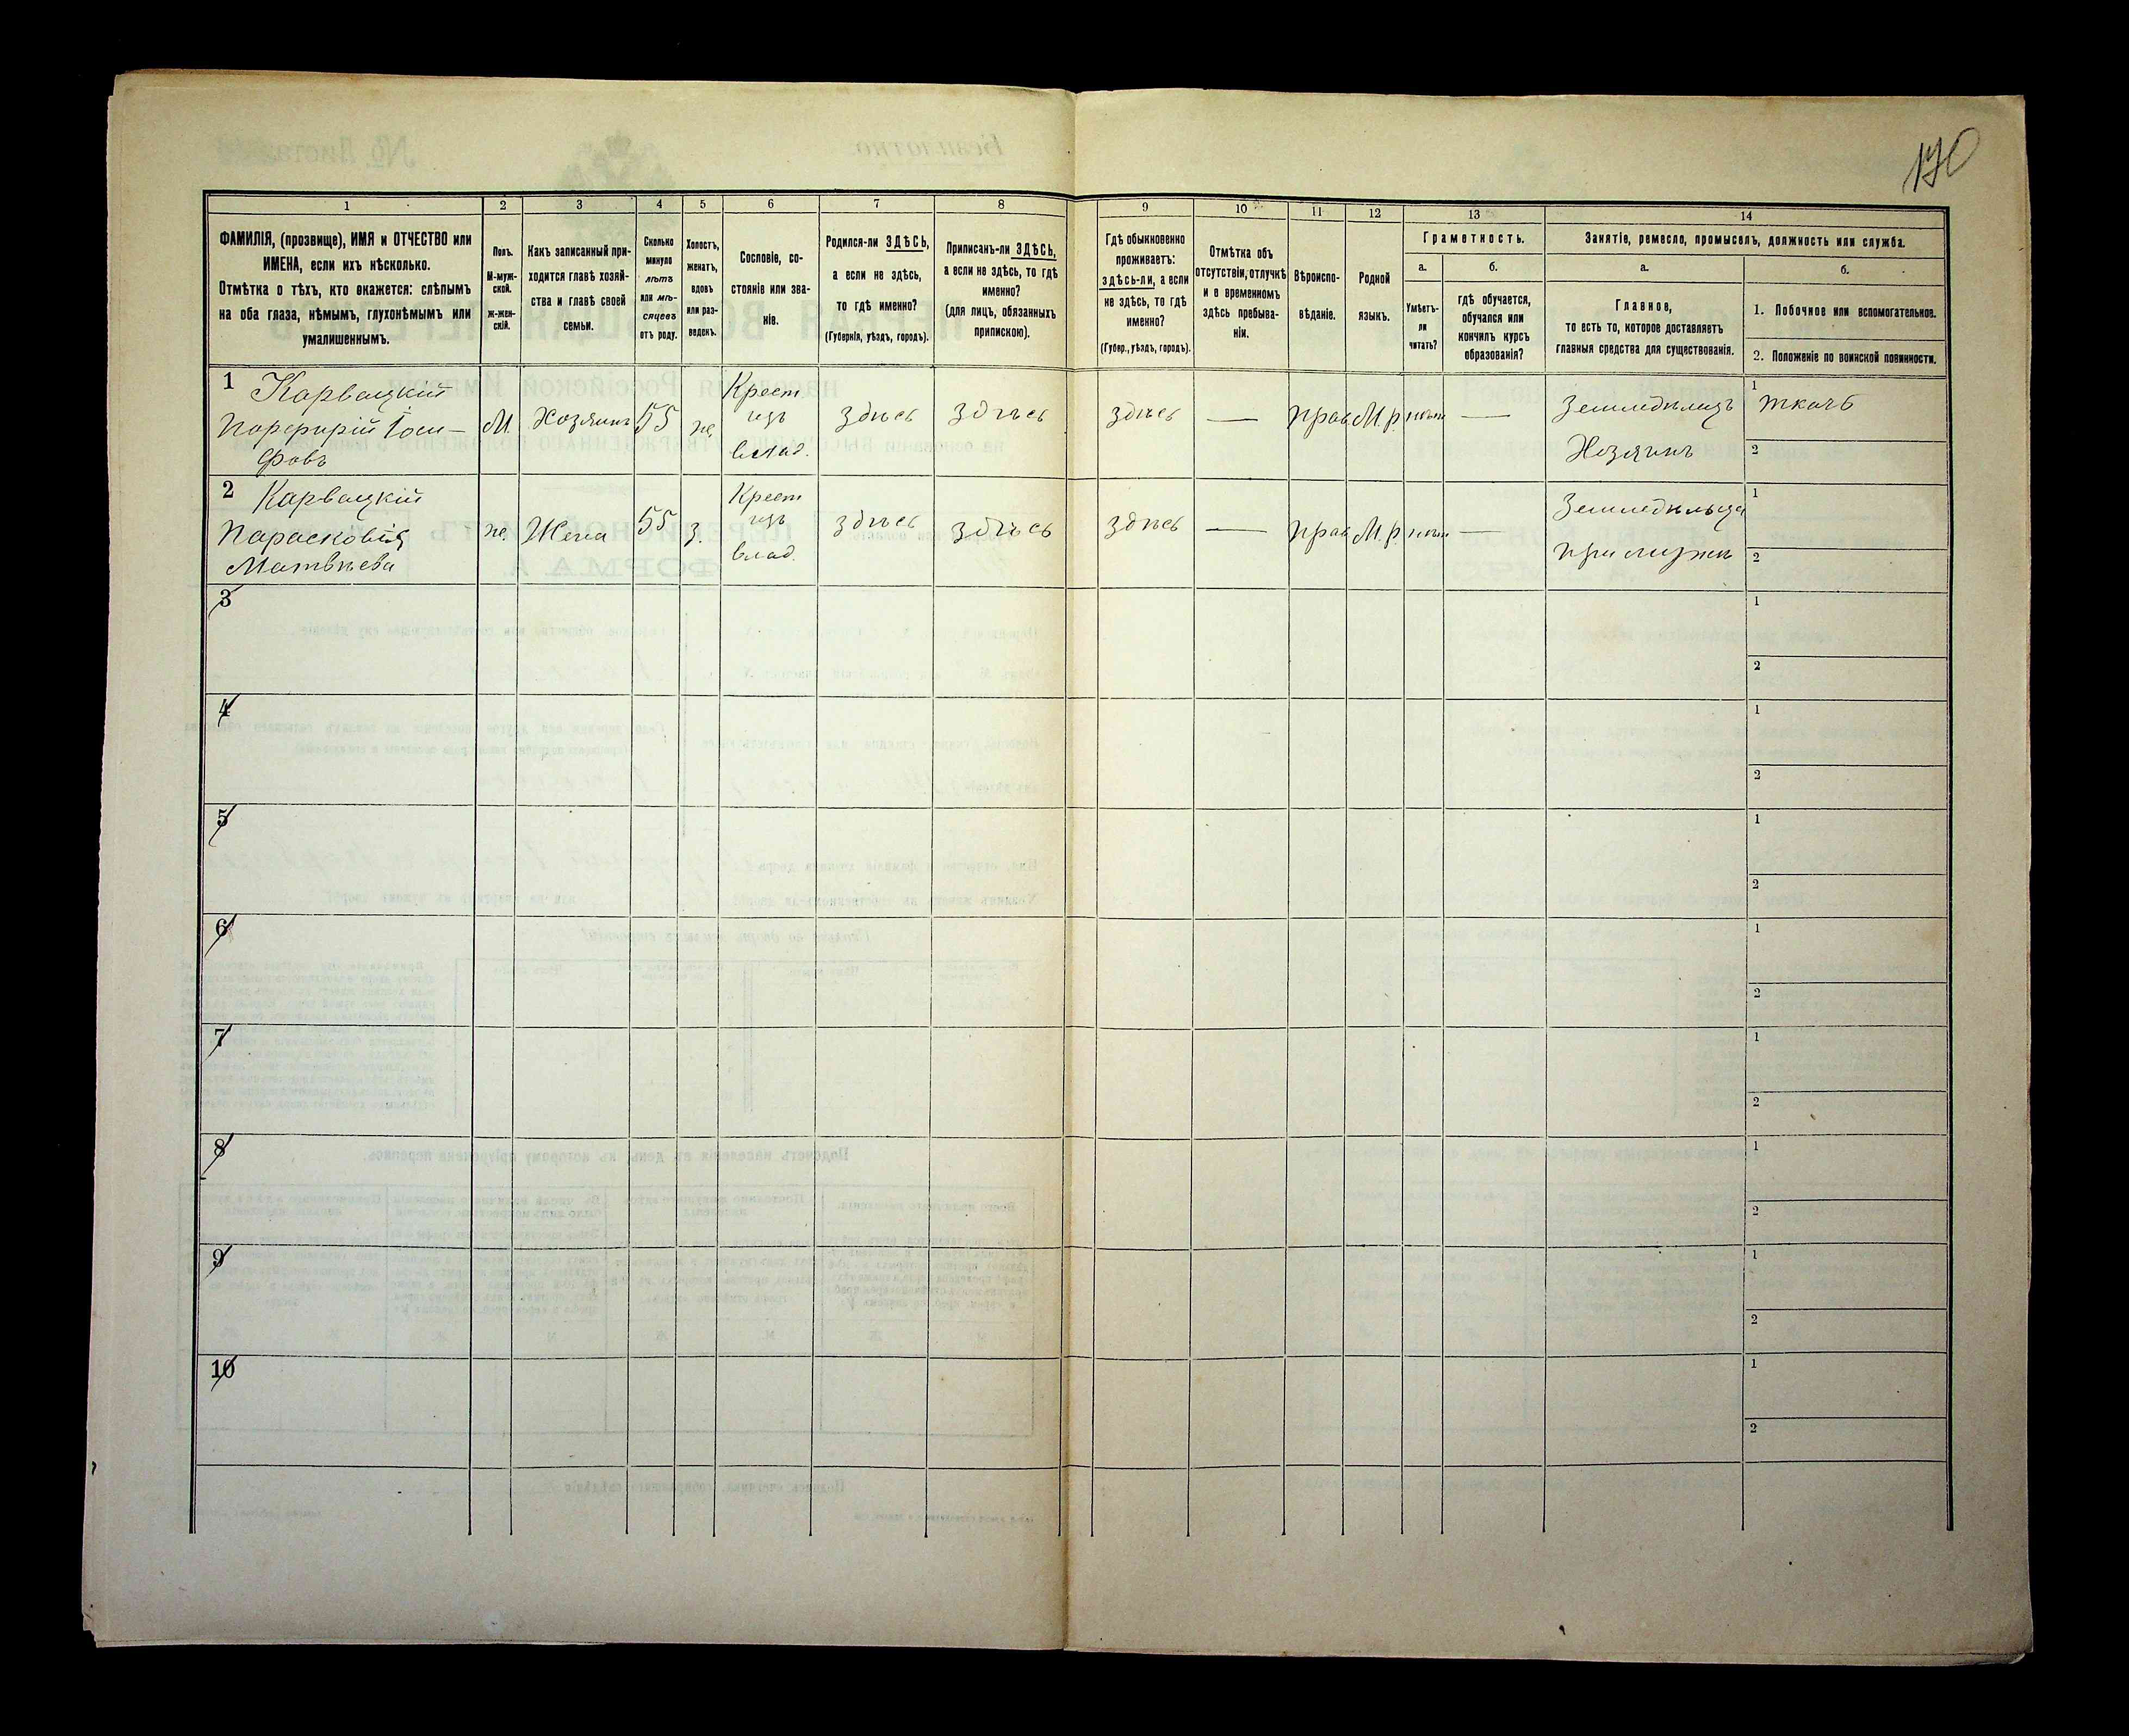 170
1
2
3
4
5
6
7
8
9
10
11
12
13
14
ФАМИЛІЯ, (прозвище), ИМЯ и ОТЧЕСТВО или
ИМЕНА, если ихъ нѣсколько.
Отмѣтка о тѣхъ, кто окажется: слѣпымъ
на оба глаза, нѣмымъ, глухонѣмымъ или
умалишеннымъ.
Полъ.
М-муж-
ской.
ж-жен-
скій.
Какъ записанный при-
ходится главѣ хозяй-
ства и главѣ своей
семьи.
Сколько
минуло
лѣтъ
или мѣ-
сяцевъ
отъ роду.
Холостъ,
женатъ,
вдовъ
или раз-
веденъ.
Сословіе, со-
стояніе или зва-
ніе.
Родился-ли ЗДѢСЬ,
а если не здѣсь,
то гдѣ именно?
(Губернія, уѣздъ, городъ).
Приписанъ-ли ЗДѢСЬ,
а если не здѣсь, то гдѣ
именно?
(для лицъ, обязанныхъ
припискою).
Гдѣ обыкновенно
проживаетъ:
здѣсь-ли, а если
не здѣсь, то гдѣ
именно?
(Губер., уѣздъ, городъ).
Отмѣтка объ
отсутствіи, отлучкѣ
и о временномъ
здѣсь пребыва-
ніи.
Вѣроиспо-
вѣданіе.
Родной
языкъ.
Грамотность.
а.
Умѣетъ-
ли
читать?
б.
гдѣ обучается,
обучался или
кончилъ курсъ
образованія?
Занятіе, ремесло, промыселъ, должность или служба.
а.
Главное,
то есть то, которое доставляетъ
главныя средства для существованія.
б.
1. Побочное или вспомогательное.
2. Положеніе по воинской повинности.
1
Карвацкій
Порфирій Іоси-
фовъ
М
Хозяинъ
55
ж
Крест
изъ
влад.
здѣсь
здѣсь
здѣсь
—
прав
М.р.
нѣт
—
Земледѣлецъ
Хозяинъ
1 ткачъ
2
2
Карвацкій
Парасковія
Матвѣева
ж
Жена
55
з.
Крест
изъ
влад.
здѣсь
здѣсь
здѣсь
—
прав
М.р.
нѣт
—
Земледѣльца
при мужѣ
1
2
3
1
2
4
1
2
5
1
2
6
1
2
7
1
2
8
1
2
9
1
2
10
1
2